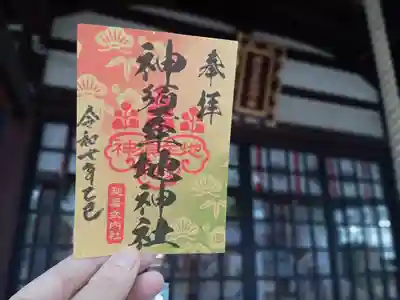 奉拝
神須牟地神社
令和七年乙巳
延喜式内社